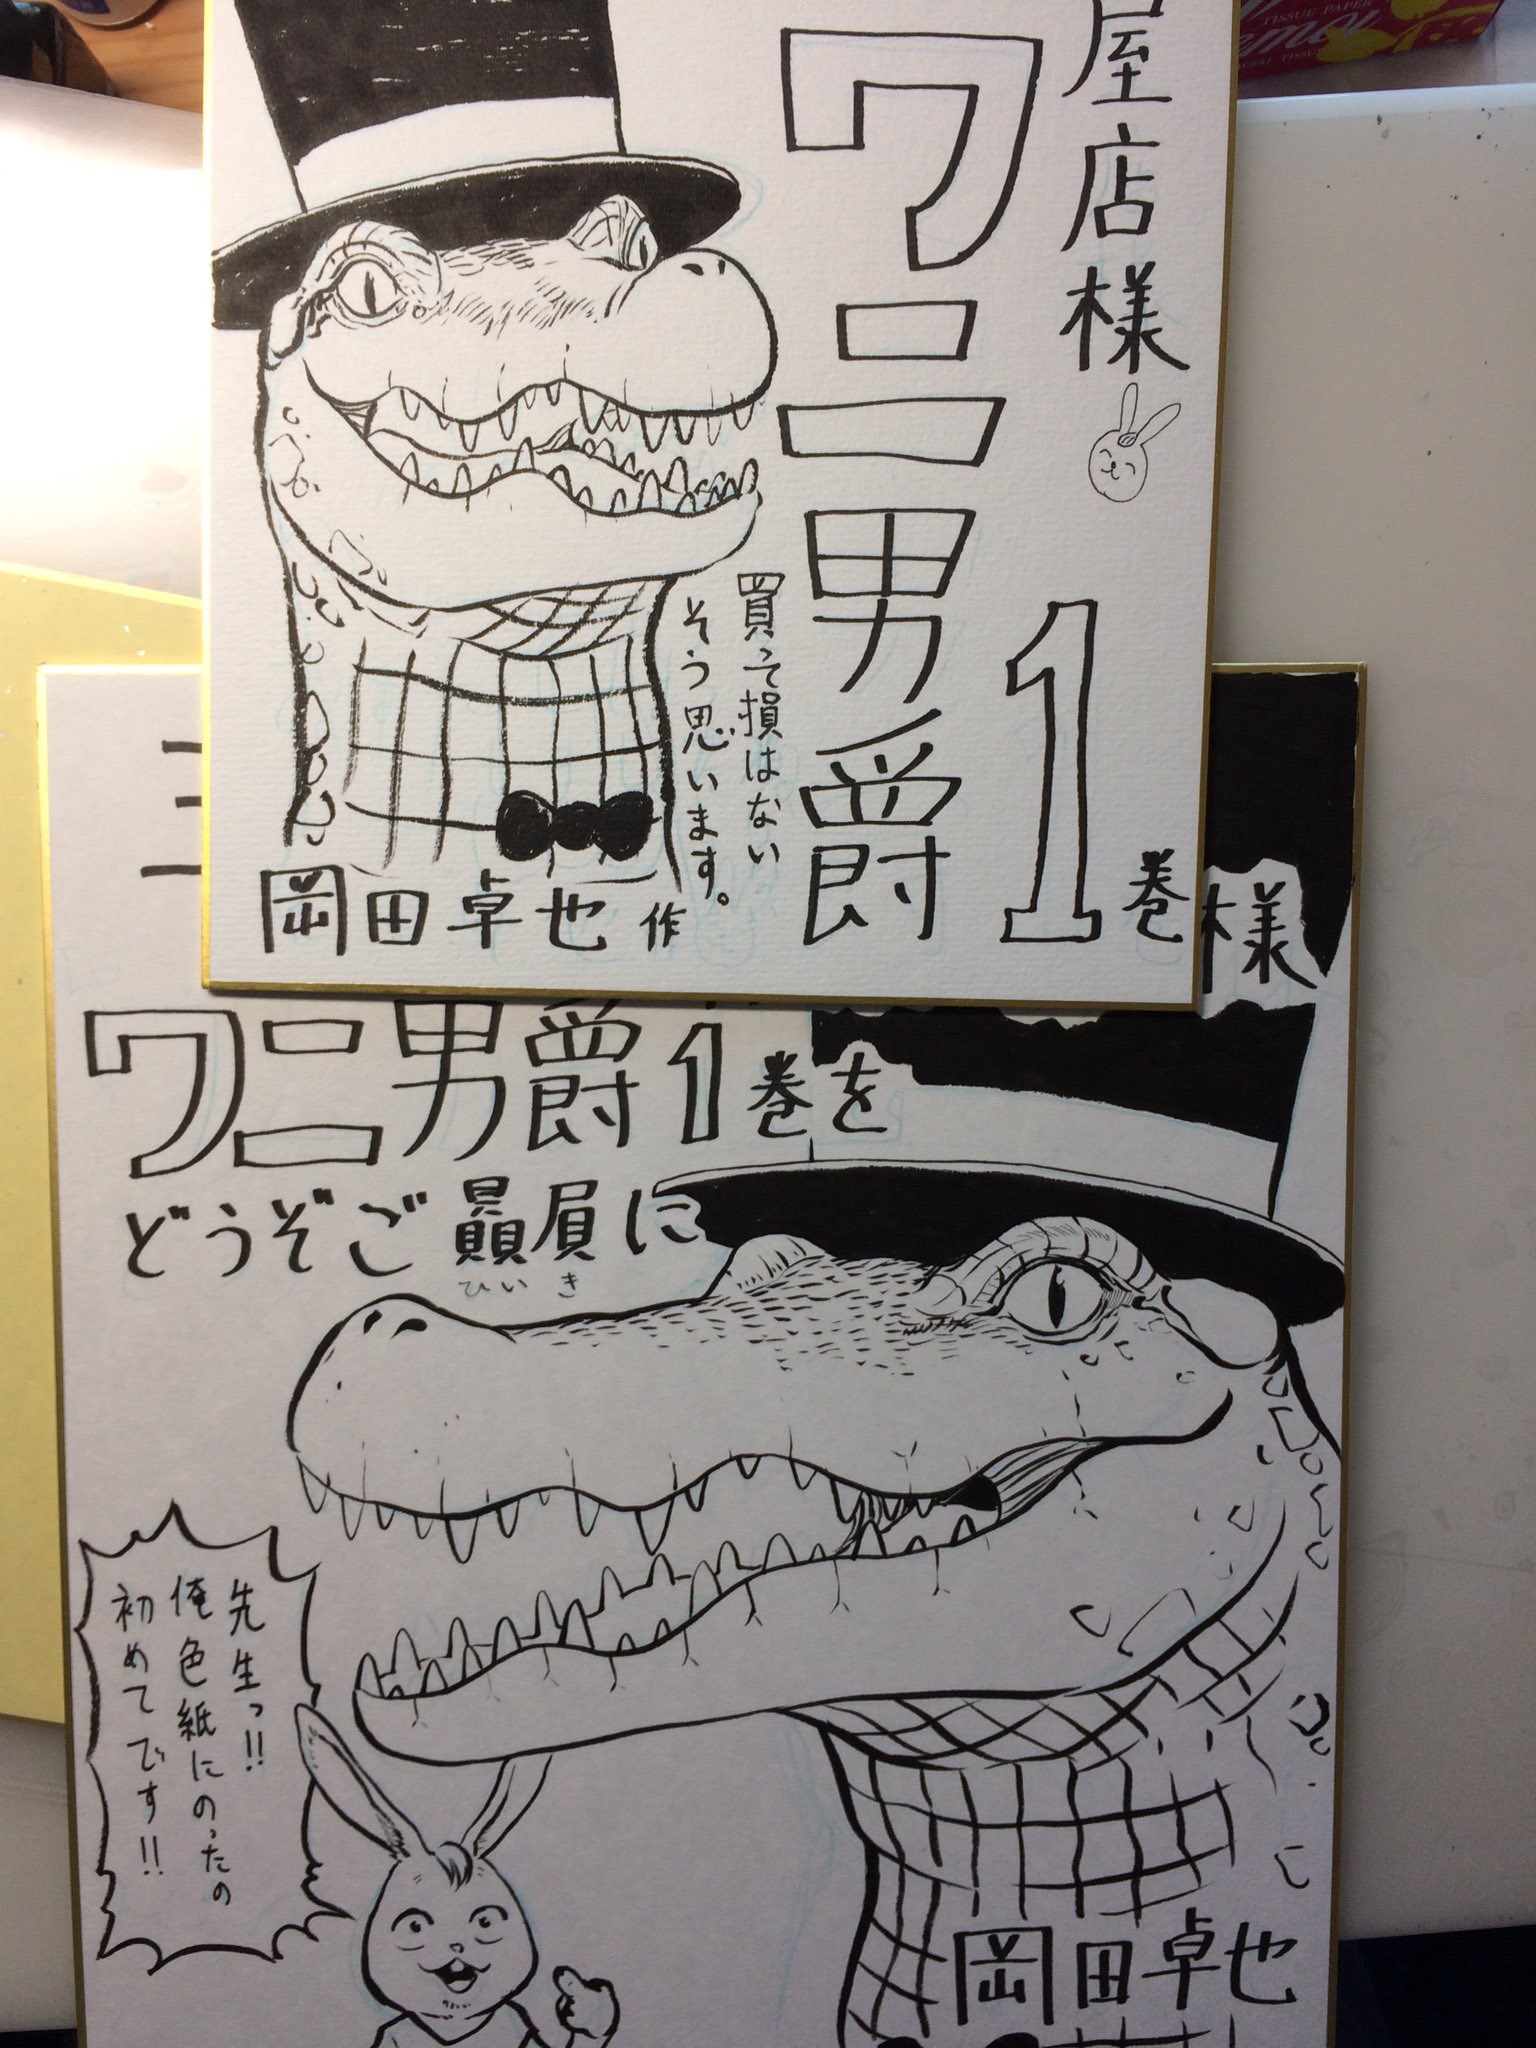 TISSUE PAPER
屋店様
ワニ男爵
1巻
買って損はない
そう思います。
岡田卓也 作
様
ワニ男爵1巻を
どうぞご贔屓に
ひいき
先生っ!!
俺色紙にのったの
初めてです!!
岡田卓也